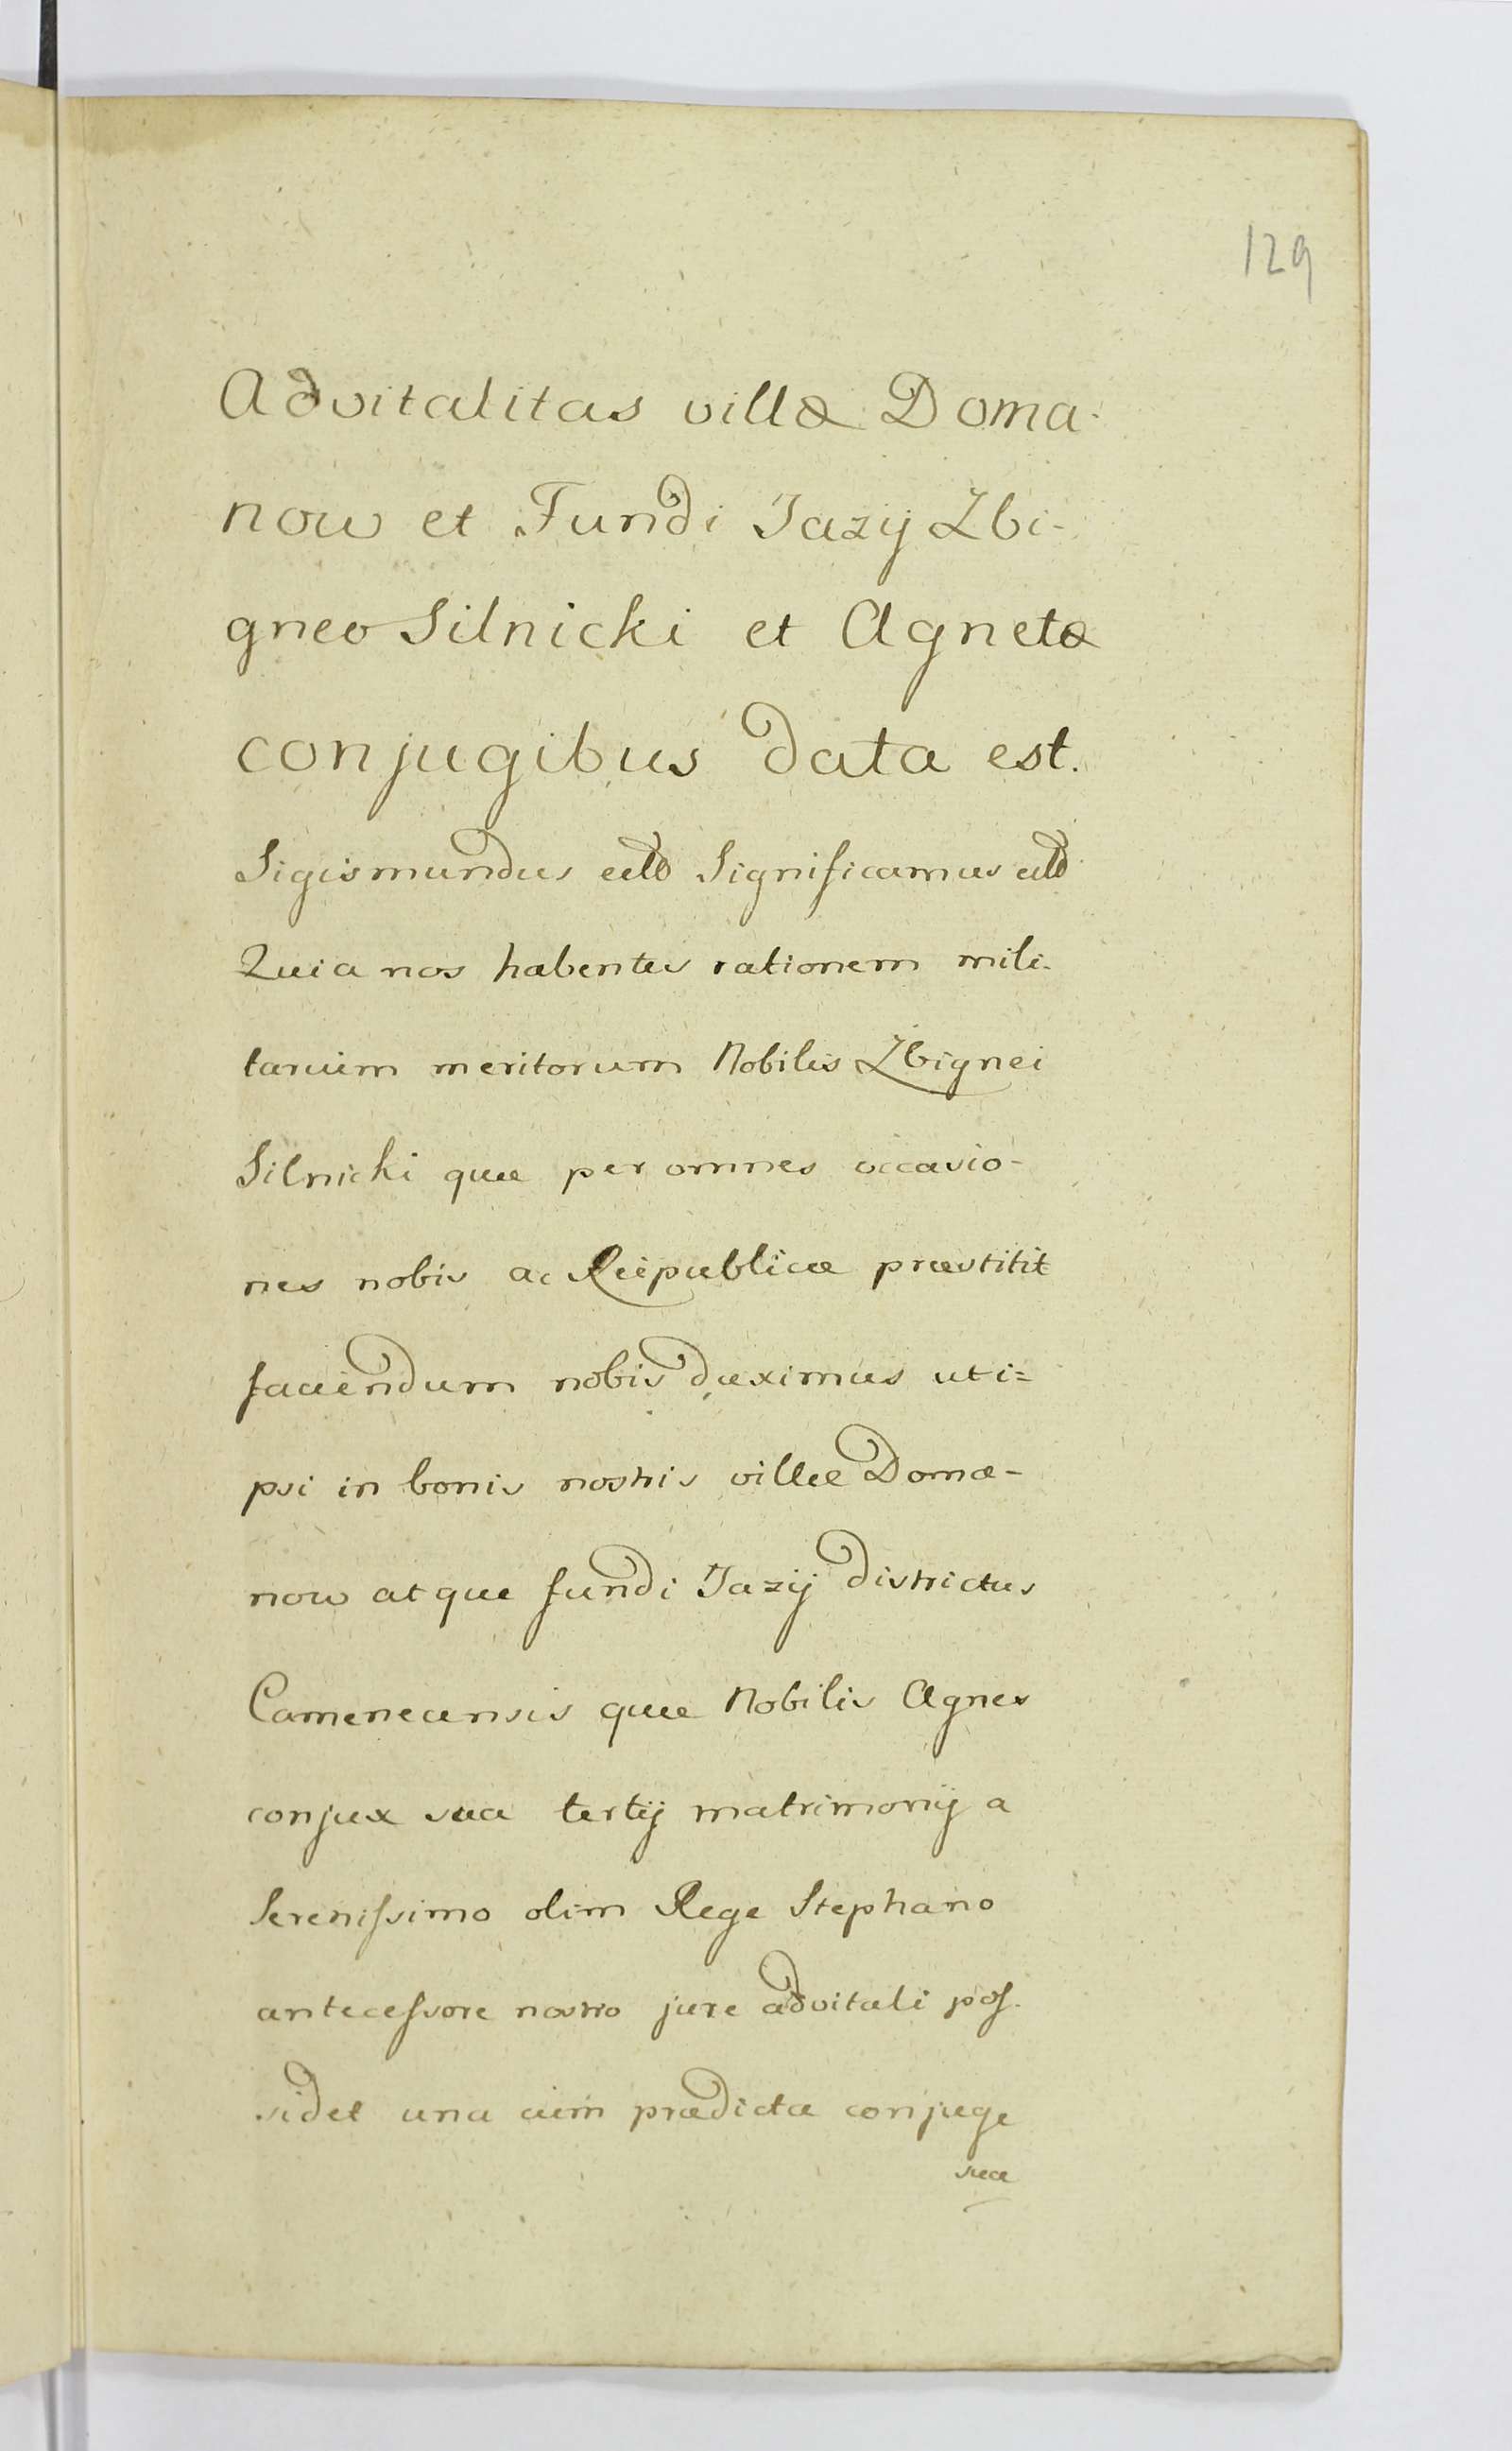 129
Advitalitas villæ Doma-
now et Fundi Jazij Zbi-
gneo Silnicki et Agnetæ
conjugibus data est.
Sigismundus etc Significamus etc
Quia nos habentes rationem mili-
tarium meritorum Nobilis Zbignei
Silnicki quæ per omnes occasio-
nes nobis ac Reipublicæ præstitit
faciendum nobis duximus uti=
psi in bonis nostris villæ Doma-
now atque fundi Jazij districtus
Camenecensis quæ Nobilis Agnes
conjux sua tertij matrimonij a
Serenissimo olim Rege Stephano
antecessore nostro jure advitali pos-
sidet una cum prædicta conjuge
sua